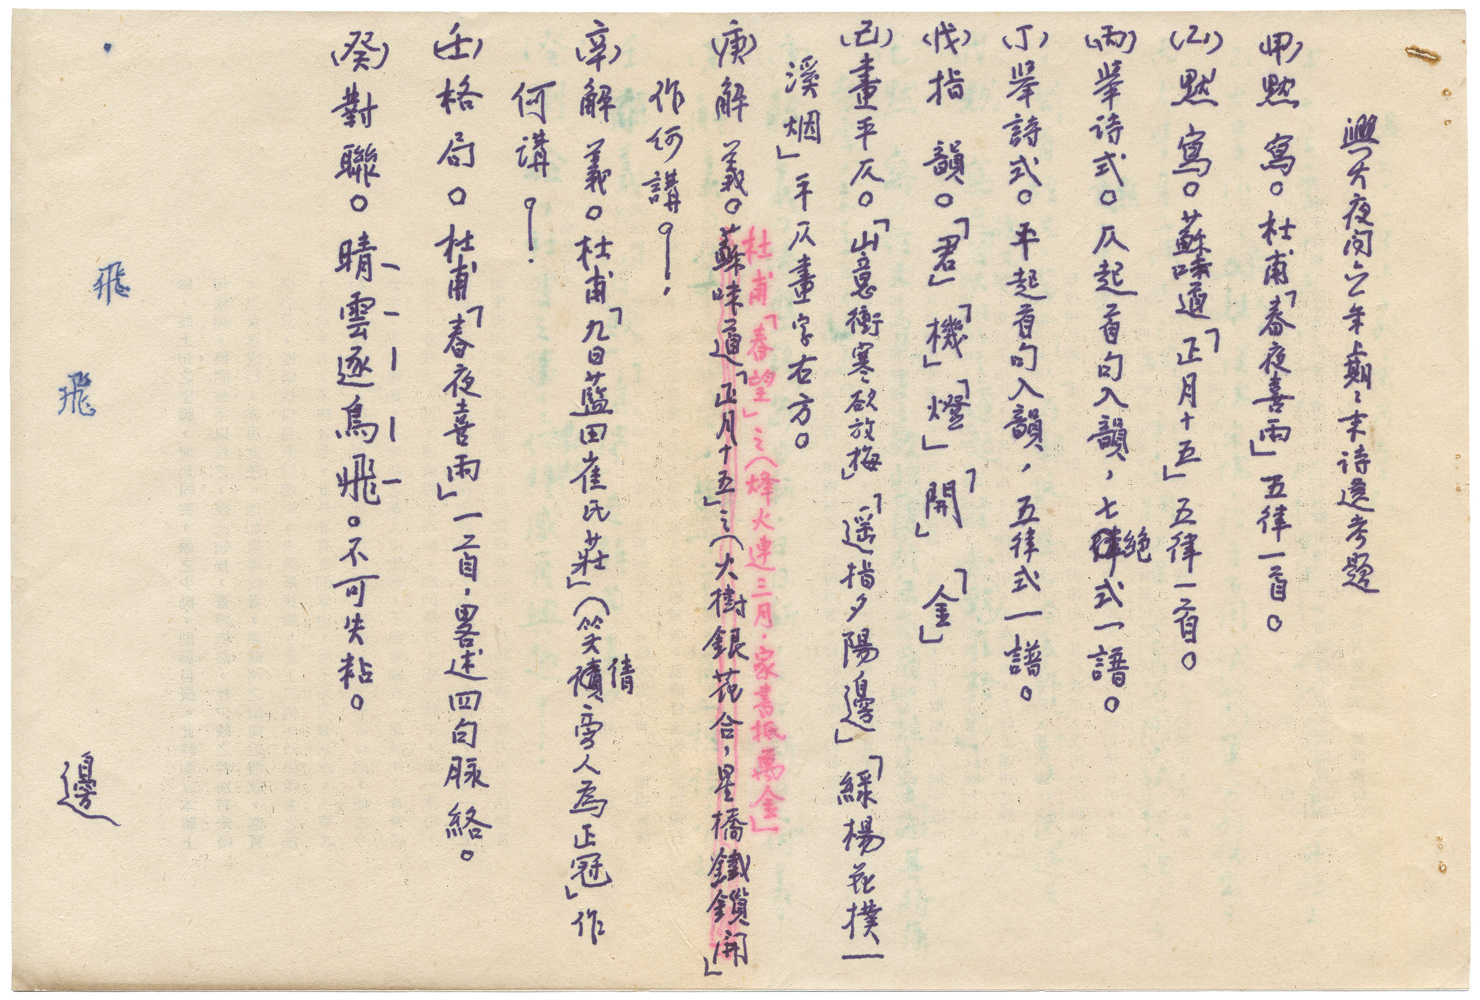 興大夜間六一年上期期末詩選考題
(甲)默寫。杜甫「春夜喜雨」五律一首。
(乙)默寫。蘇味道「正月十五」五律一首。
(丙)舉詩式。仄起首句入韻,七絕式一譜。
(丁)舉詩式。平起首句入韻,五律式一譜。
(戊)指韻。「君」「機」「燈」「開」「金」
(己)畫平仄。「山意衝寒欲放梅」「遥指夕陽邊」「綠楊花撲一
溪烟」平仄畫字右方。
杜甫「春望」之(烽火連三月,家書抵萬金)
(庚)解義。蘇味道「正月十五」之(火樹銀花合,星橋鐵鎖開」
作何講?!
(辛)解義。杜甫「九日藍田崔氏莊」(笑倩旁人為正冠」作
何講?!
(壬)格局。杜甫「春夜喜雨」一首,畧述四句脈絡。
(癸)對聯。晴雲逐鳥飛。不可失粘。
飛
飛
邊